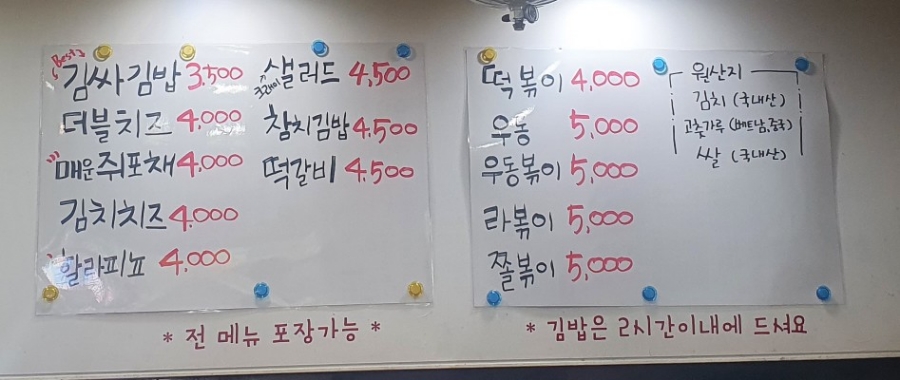 Best
김싸김밥 3,500
더블치즈 4,000
매운쥐포채 4,000
김치치즈 4,000
할라피뇨 4,000
크래미 샐러드 4,500
참치김밥 4,500
떡갈비 4,500
떡볶이 4,000
우동 5,000
우동볶이 5,000
라볶이 5,000
쫄볶이 5,000
원산지
김치 (국내산)
고춧가루 (베트남,중국)
쌀 (국내산)
* 전 메뉴 포장가능 *
* 김밥은 2시간이내에 드셔요